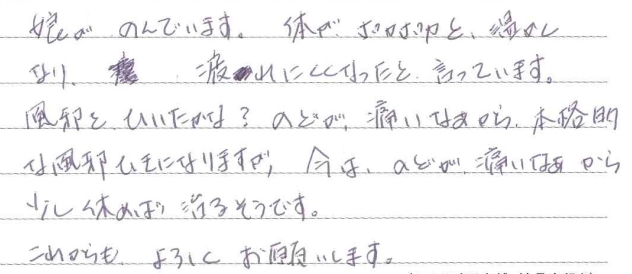 娘が のんでいます。 体が ポカポカと、温かく
なり、 疲れにくくなったと 言っています。
風邪を ひいたかな？ のどが、痛いなぁから、本格的
な風邪ひきになりますが、 今は、のどが、痛いなぁ から
少し 休めば 治るそうです。
これからも よろしく お願いします。